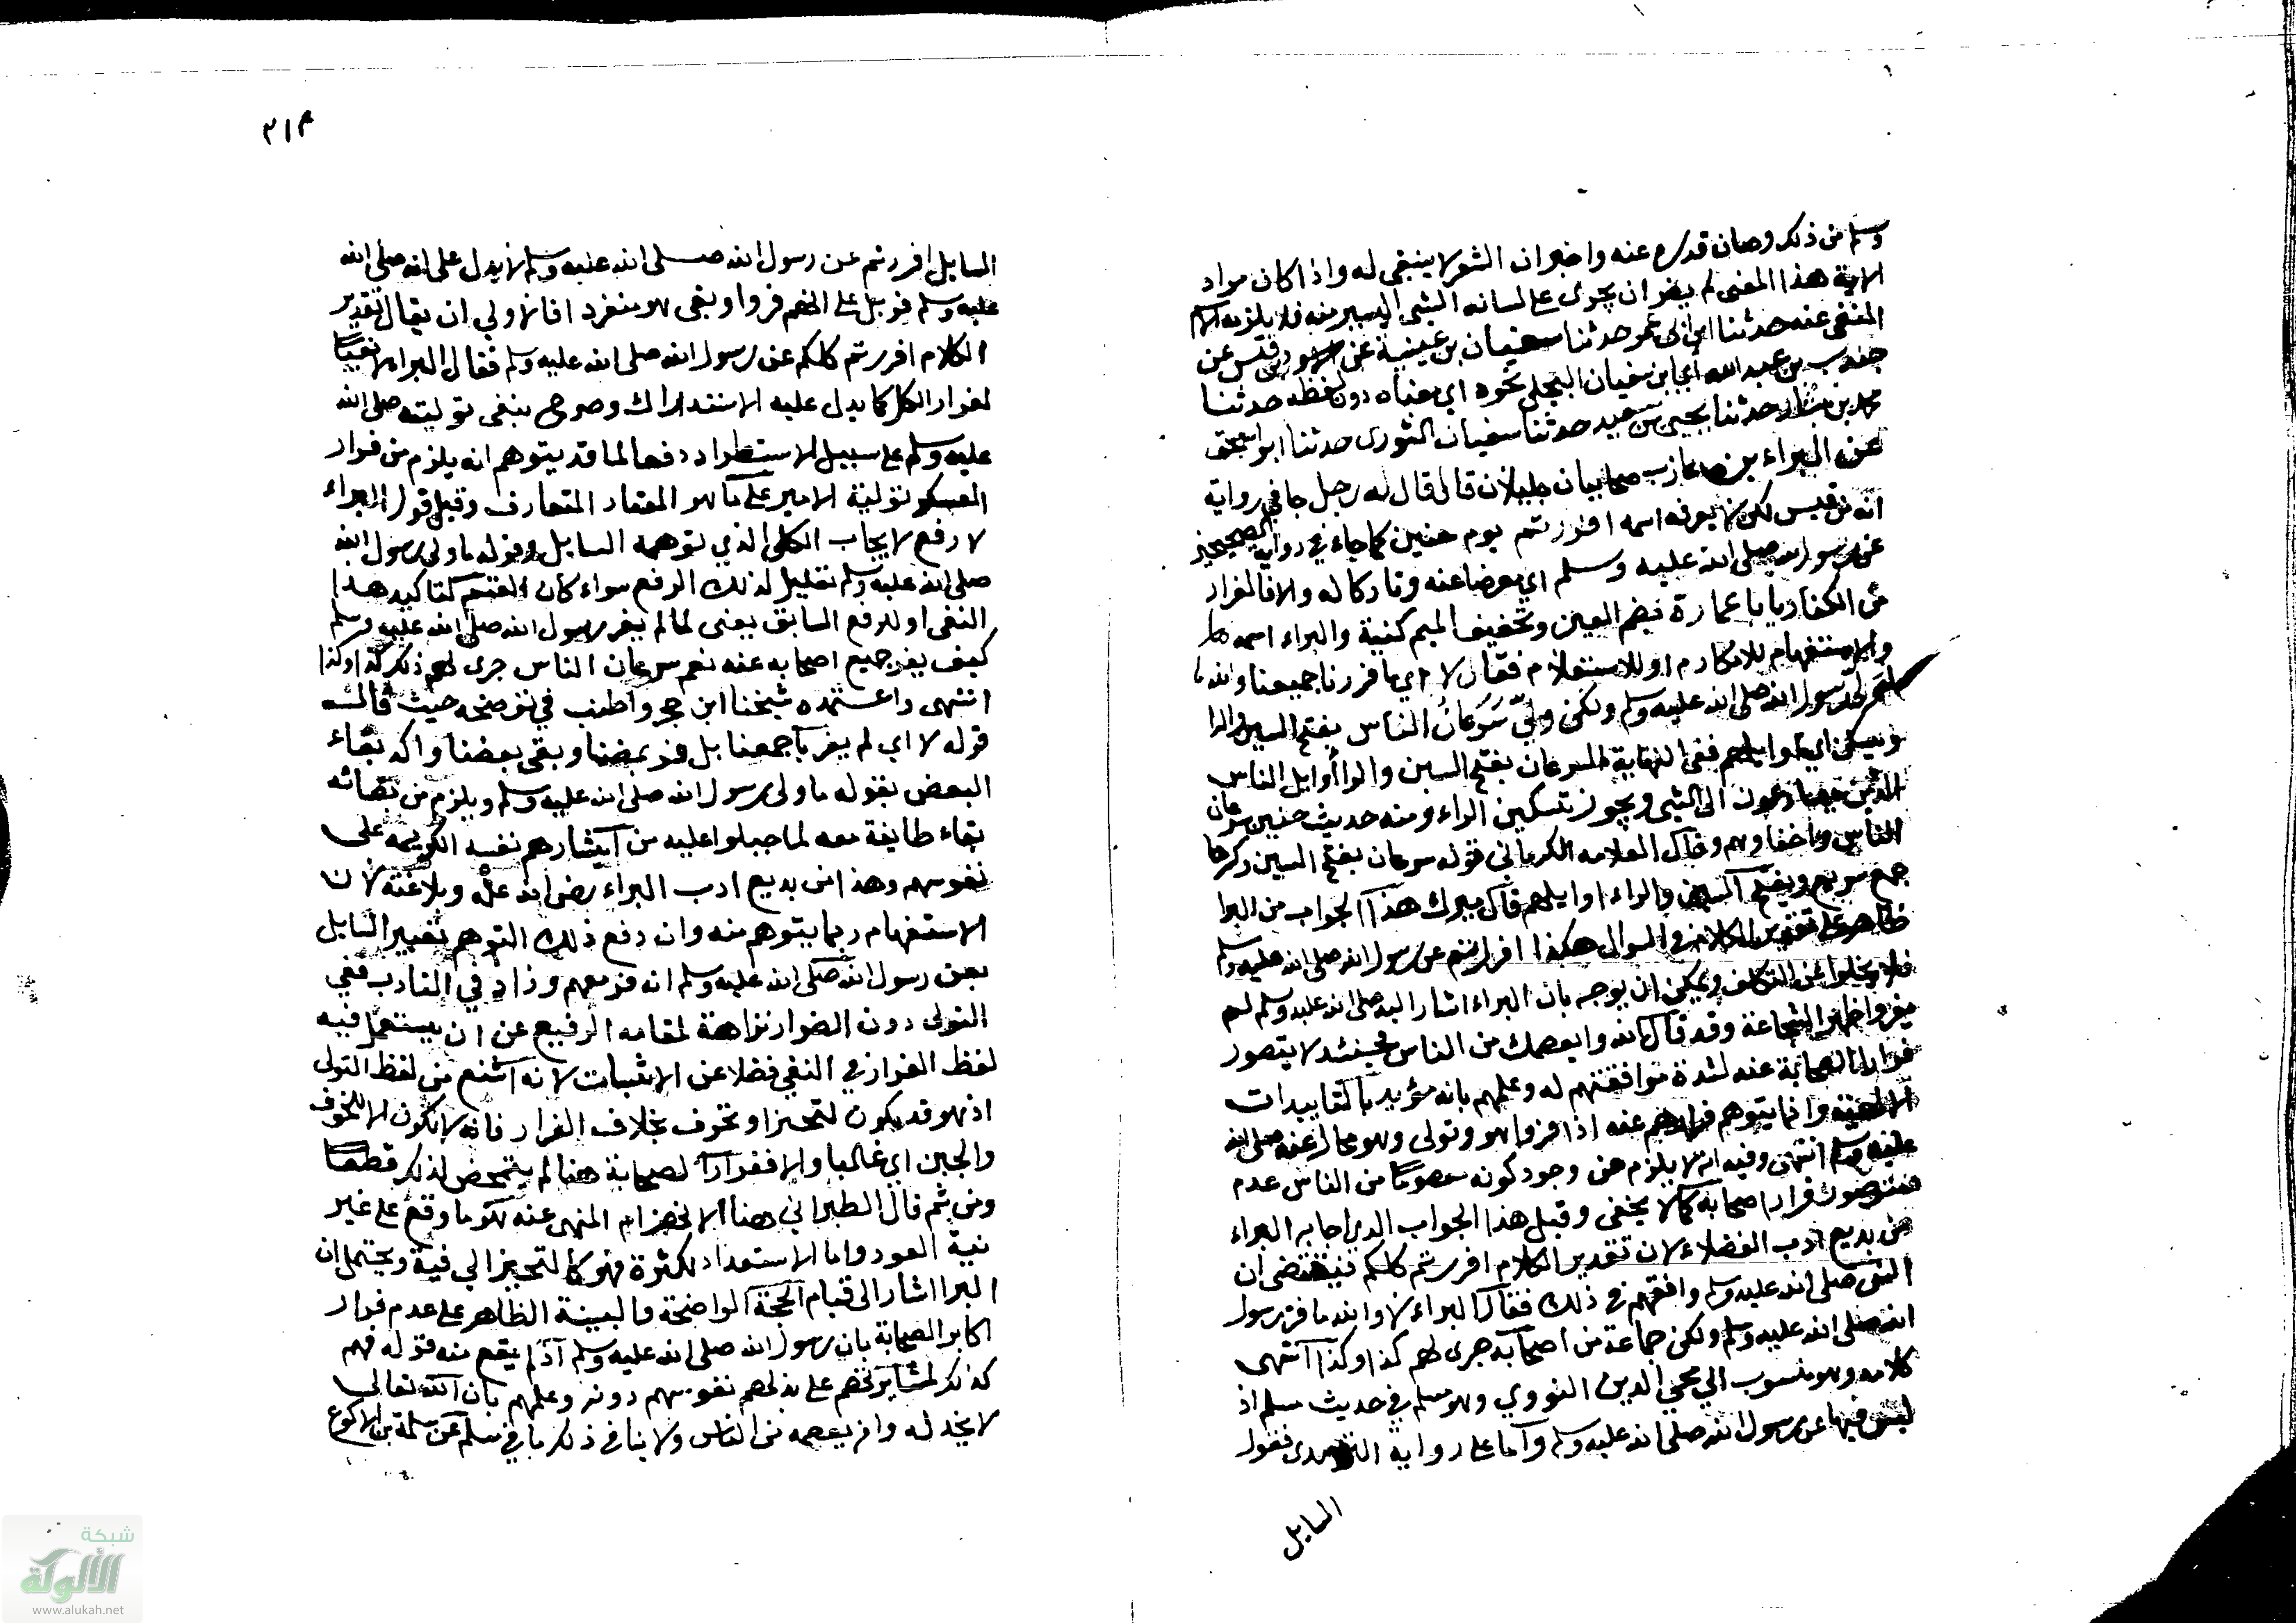 وسلم من ذلك وصان قدره عنه واخبر ان الشعر لا ينبغي له واذا كان مراد
الاية هذا المعنى لم يضر ان يجرى على لسانه الشى اليسير منه فلا يلزمه الاسم
المنفى عنه حدثنا ابن ابى عمر حدثنا سفيان بن عيينة عن الاسود بن قيس عن
جندب بن عبد الله اي ابن سفيان البجلي نحوه اي معناه دون لفظه حدثنا
محمد بن بشار حدثنا يحيى بن سعيد حدثنا سفيان الثورى حدثنا ابو اسحق
عن البراء بن عازب صحابيان جليلان قال قال له رجل جا في رواية
انه من قيس لكن لا يعرف اسمه افررتم يوم حنين كما جاء في رواية الصحيحين
عن رسول الله صلى الله عليه وسلم اي معرضا عنه وتاركا له والا فالفرار
من الكفار يا ابا عمارة بضم العين وتخفيف الميم كنية والبراء اسمه
والاستفهام للانكار او للاستعلام فقال لا اي ما فررنا جميعنا والله ما
ولى رسول الله صلى الله عليه وسلم ولكن ولى سرعان الناس بفتح السين والرا
ويسكن اي اوايلهم ففي النهاية السرعان بفتح السين والرا أوايل الناس
الذين يتسارعون الى الشى ويجوز تسكين الراء ومنه حديث حنين سرعان
الناس واخفاوهم وقال العلامه الكرماني قوله سرعان بفتح السين وكسرها
جمع سريع وبفتح السين والراء اوايلهم قال ميرك هذا الجواب من البرا
ظاهر على تقدير الكلام في السوال هكذا افررتم عن رسول الله صلى الله عليه وسلم
فلا يخلوا عن التكلف ويمكن ان يوجه بان البراء اشار اليه صلى الله عليه وسلم لم
يفر واظهر الشجاعة وقد قال الله والله يعصمك من الناس فحينئذ لا يتصور
فرار الصحابة عنه لشدة موافقتهم له وعلمهم بانه مؤيد بالتاييدات
الالهية وانما يتوهم فرارهم عنه اذا فر وا هو وتولى وهو محال عنه صلى الله
عليه وسلم انتهى وفيه انه لا يلزم من وجود كونه معصوما من الناس عدم
تصور فرار اصحابه كما لا يخفى وقيل هذا الجواب الذي اجابه البراء
من بديع ادب الفضلاء لان تقدير الكلام افررتم كلكم فيقتضى ان
النبى صلى الله عليه وسلم وافقهم في ذلك فقال البراء لا والله ما فر رسول
الله صلى الله عليه وسلم ولكن جماعة من اصحابه جرى لهم كذا وكذا انتهى
كلامه وهو منسوب الي محي الدين النووي وهو مسلم في حديث مسلم اذ
ليس فيها عن رسول الله صلى الله عليه وسلم واما على رواية الترمذي فقول
السايل
٣١٣
السايل افررتم عن رسول الله صلى الله عليه وسلم لا يدل على انه صلى الله
عليه وسلم فر بل على انهم فروا وبقى هو منفردا فالاولي ان يقال تقدير
الكلام افررتم كلكم عن رسول الله صلى الله عليه وسلم فقال البراء لا نفيا
لفرار الكل كما يدل عليه الاستدراك وصرح بنفى توليته صلى الله
عليه وسلم على سبيل الاستطراد دفعا لما قد يتوهم انه يلزم من فرار
العسكر تولية الامير على ما هو المعتاد المتعارف وقيل قول البراء
لا رفع لايجاب الكلى الذي توهمه السايل وقوله ما ولى رسول الله
صلى الله عليه وسلم تعليل لذلك الرفع سواء كان القسم لتاكيد هذا
النفى او للرفع السابق يعنى لما لم يفر رسول الله صلى الله عليه وسلم
كيف يفر جميع اصحابه عنه نعم سرعان الناس جرى لهم ذلك كذا وكذا
انتهى واعتمده شيخنا ابن حجر واطنب في توضيحه حيث قال
قوله لا اي لم يفر باجمعنا بل فر بعضنا وبقى بعضنا واكد بقاء
البعض بقوله ما ولى رسول الله صلى الله عليه وسلم ويلزم من بقائه
بقاء طايفة معه لما جبلوا عليه من ايثارهم نفسه الكريمه على
نفوسهم وهذا من بديع ادب البراء رضى الله عنه وبلاغته لان
الاستفهام ربما يتوهم منه وان دفع ذلك التوهم تعبير السايل
بعن رسول الله صلى الله عليه وسلم انه فر معهم وزاد في التادب بنفي
التولى دون الفرار نزاهة لمقامه الرفيع عن ان يستعمل فيه
لفظ الفرار في النفى فضلا عن الاثبات لانه اشنع من لفظ التولى
اذ هو قد يكون لتحيز او تحرف بخلاف الفرار فانه لا يكون الا للخوف
والجبن اي غالبا والا ففرار الصحابة هنا لم يتمحض لذلك قطعا
ومن ثم قال الطبراني هنا الانهزام المنهى عنه هو ما وقع على غير
نية العود واما الاستعداد لكثرة فهو كالتحيز الي فية ويحتمل ان
البرا اشار الى قيام الحجة الواضحة والبينة الظاهر على عدم فرار
اكابر الصحابة بان رسول الله صلى الله عليه وسلم اذ لم يقع منه قوله فهم
كذلك لمثابرتهم على بذلهم نفوسهم دونه وعلمهم بان الله تعالى
لا يخذله وانه يعصمه من الناس ولا ينافي ذلك ما في مسلم عن سلمة بن الاكوع
شبكة
الألوكة
www.alukah.net